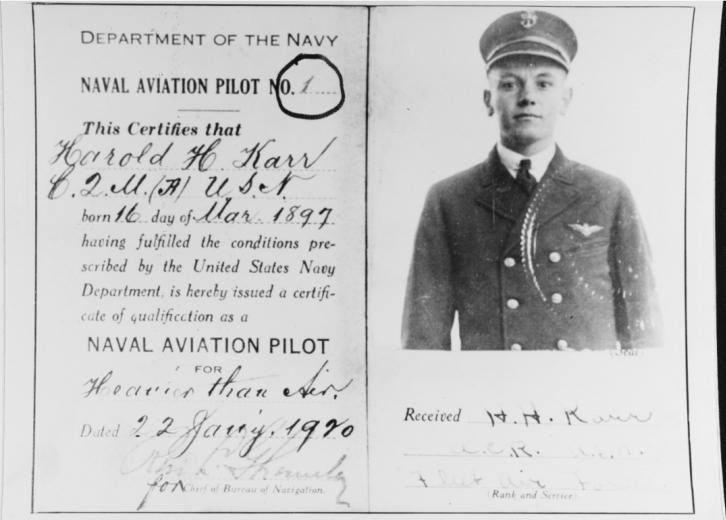 DEPARTMENT OF THE NAVY
NAVAL AVIATION PILOT NO. 1
This Certifies that
Harold H. Karr
C.Q.M.(A) U.S.N.
born 16 day of Mar. 1897
having fulfilled the conditions pre-
scribed by the United States Navy
Department, is hereby issued a certifi-
cate of qualification as a
NAVAL AVIATION PILOT
FOR
Heavier than Air.
Dated 22 Jan'y. 1920
for Chief of Bureau of Navigation.
(Seal)
Received H. H. Karr
Fleet Air
(Rank and Service)